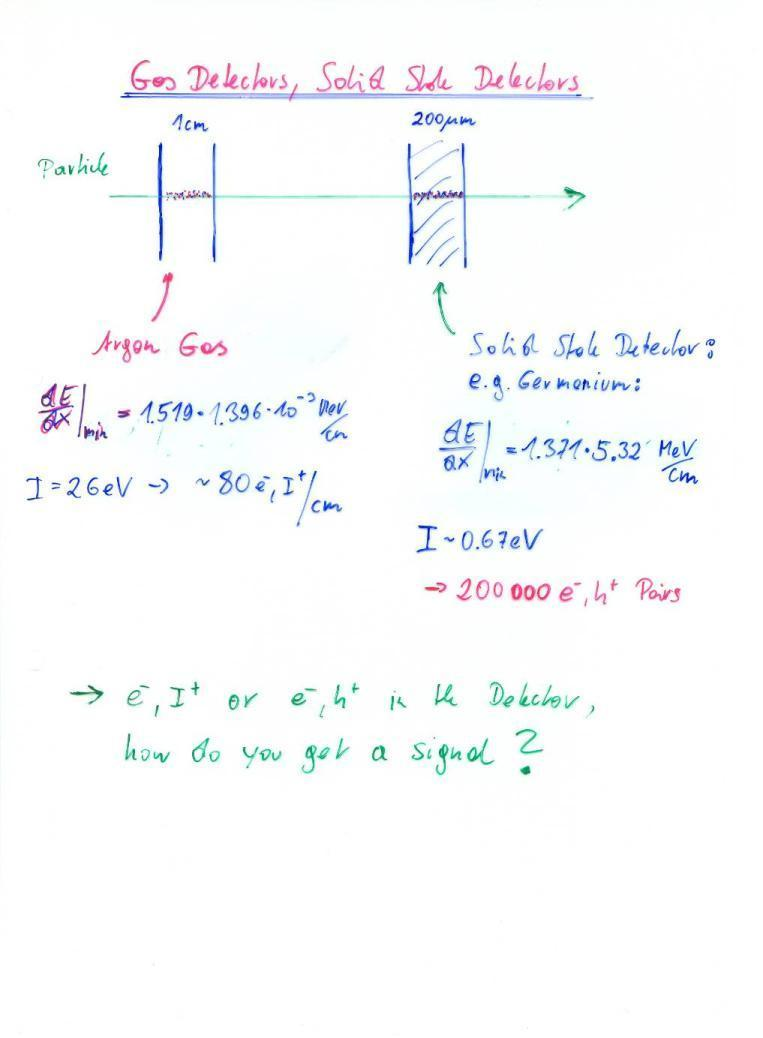 Gas Detectors, Solid State Detectors
1cm
200μm
Particle
Argon Gas
dE/dx|min = 1.519·1.396·10⁻³ MeV/cm
I = 26eV → ~80 e⁻, I⁺/cm
Solid State Detector:
e.g. Germanium:
dE/dx|min = 1.371·5.32 MeV/cm
I ~ 0.67eV
→ 200 000 e⁻, h⁺ Pairs
→ e⁻, I⁺ or e⁻, h⁺ in the Detector,
how do you get a signal ?